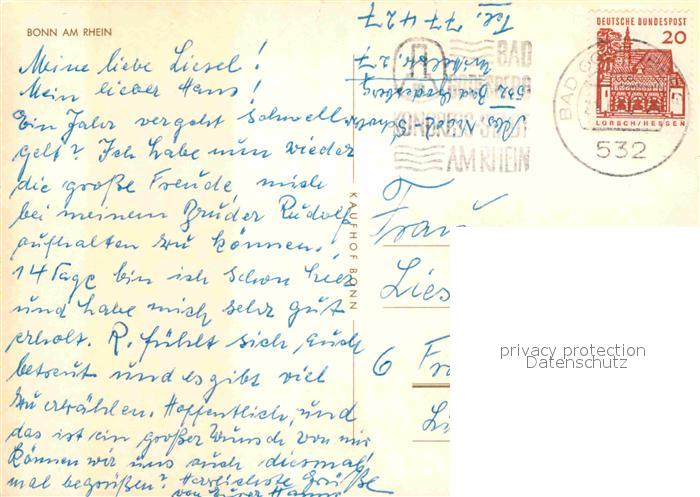 BONN AM RHEIN
Meine liebe Liesel!
Mein lieber Hans!
Ein Jahr vergeht schnell
gelt? Ich habe nun wieder
die große Freude, mich
bei meinem Bruder Rudolf
aufhalten zu können.
14 Tage bin ich schon hier
und habe mich sehr gut
erholt. R. fühlt sich auch
betreut und es gibt viel
zu erzählen. Hoffentlich, und
das ist ein großer Wunsch von mir
können wir uns auch diesmal
mal begrüßen? Herzlichste Grüße
von Eurer
KAUFHOF BONN
Tel. 77427
532 Bad Godesberg
BAD
GODESBERG
KONGRESS-STADT
AM RHEIN
BAD GO
532
DEUTSCHE BUNDESPOST
20
LORSCH/HESSEN
Frau
Lies
6 Fr
Li
privacy protection
Datenschutz